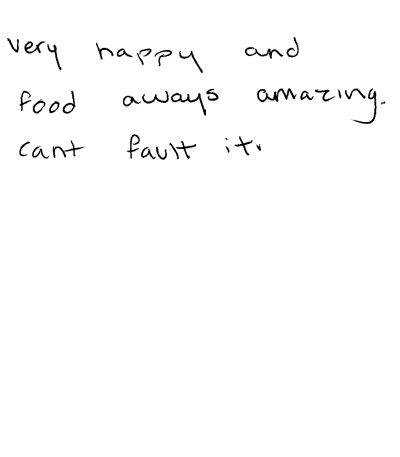 very happy and
food aways amazing.
cant fault it.